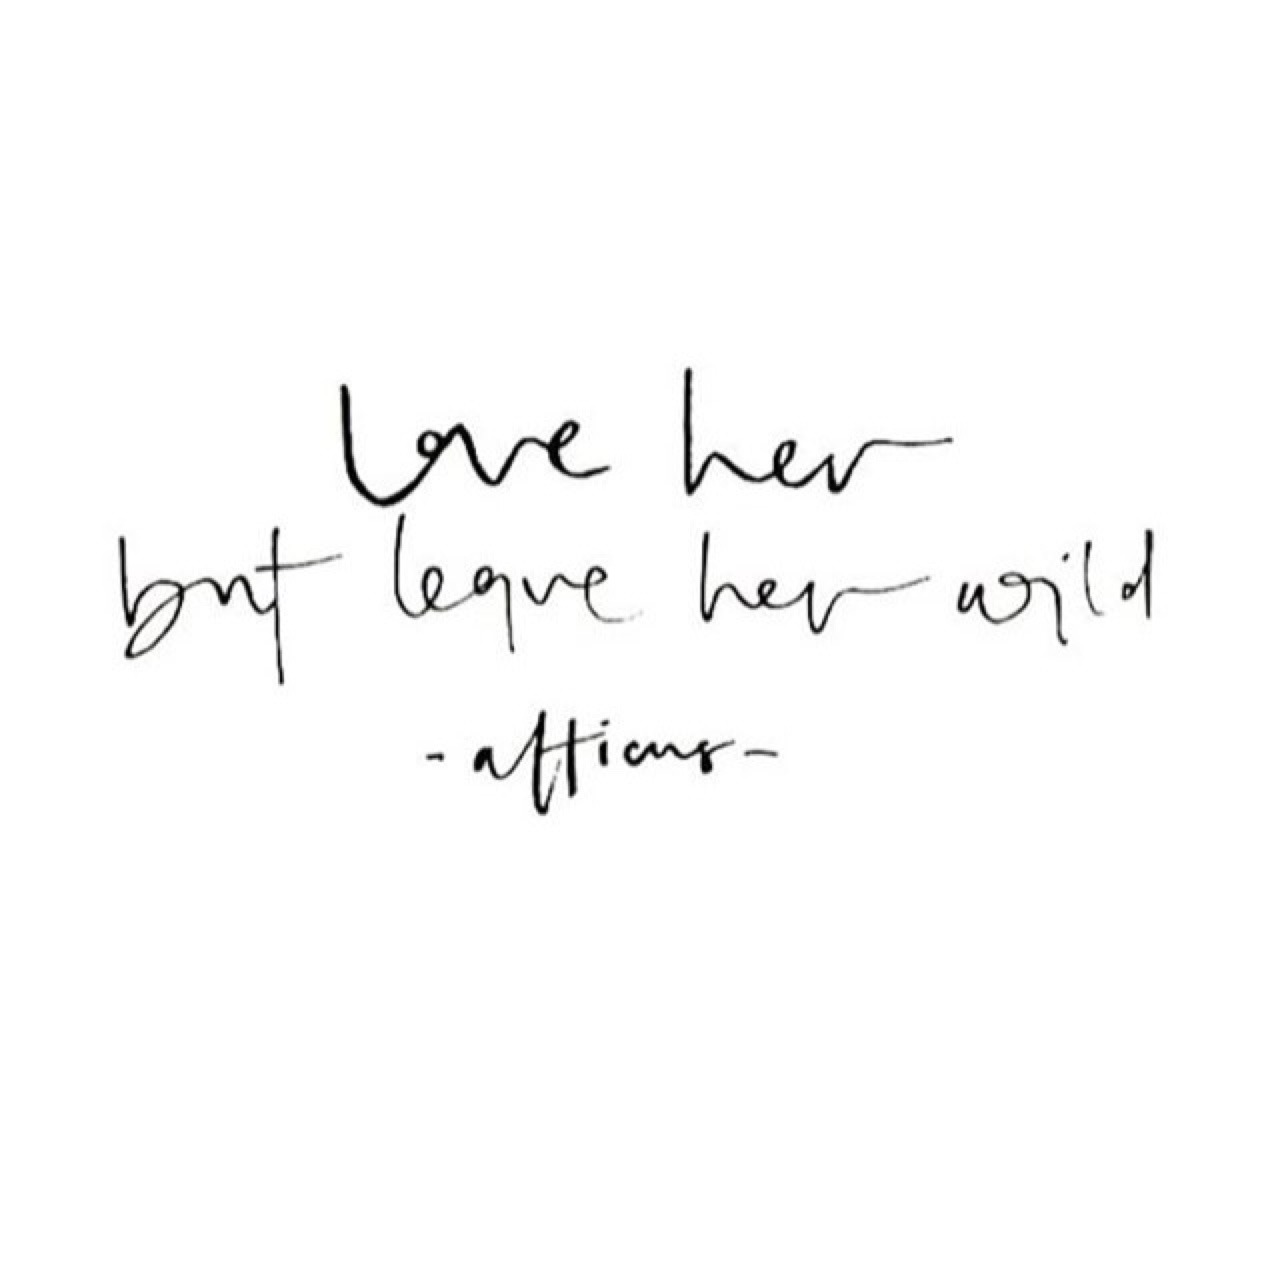 love her
but leave her wild
- atticus -